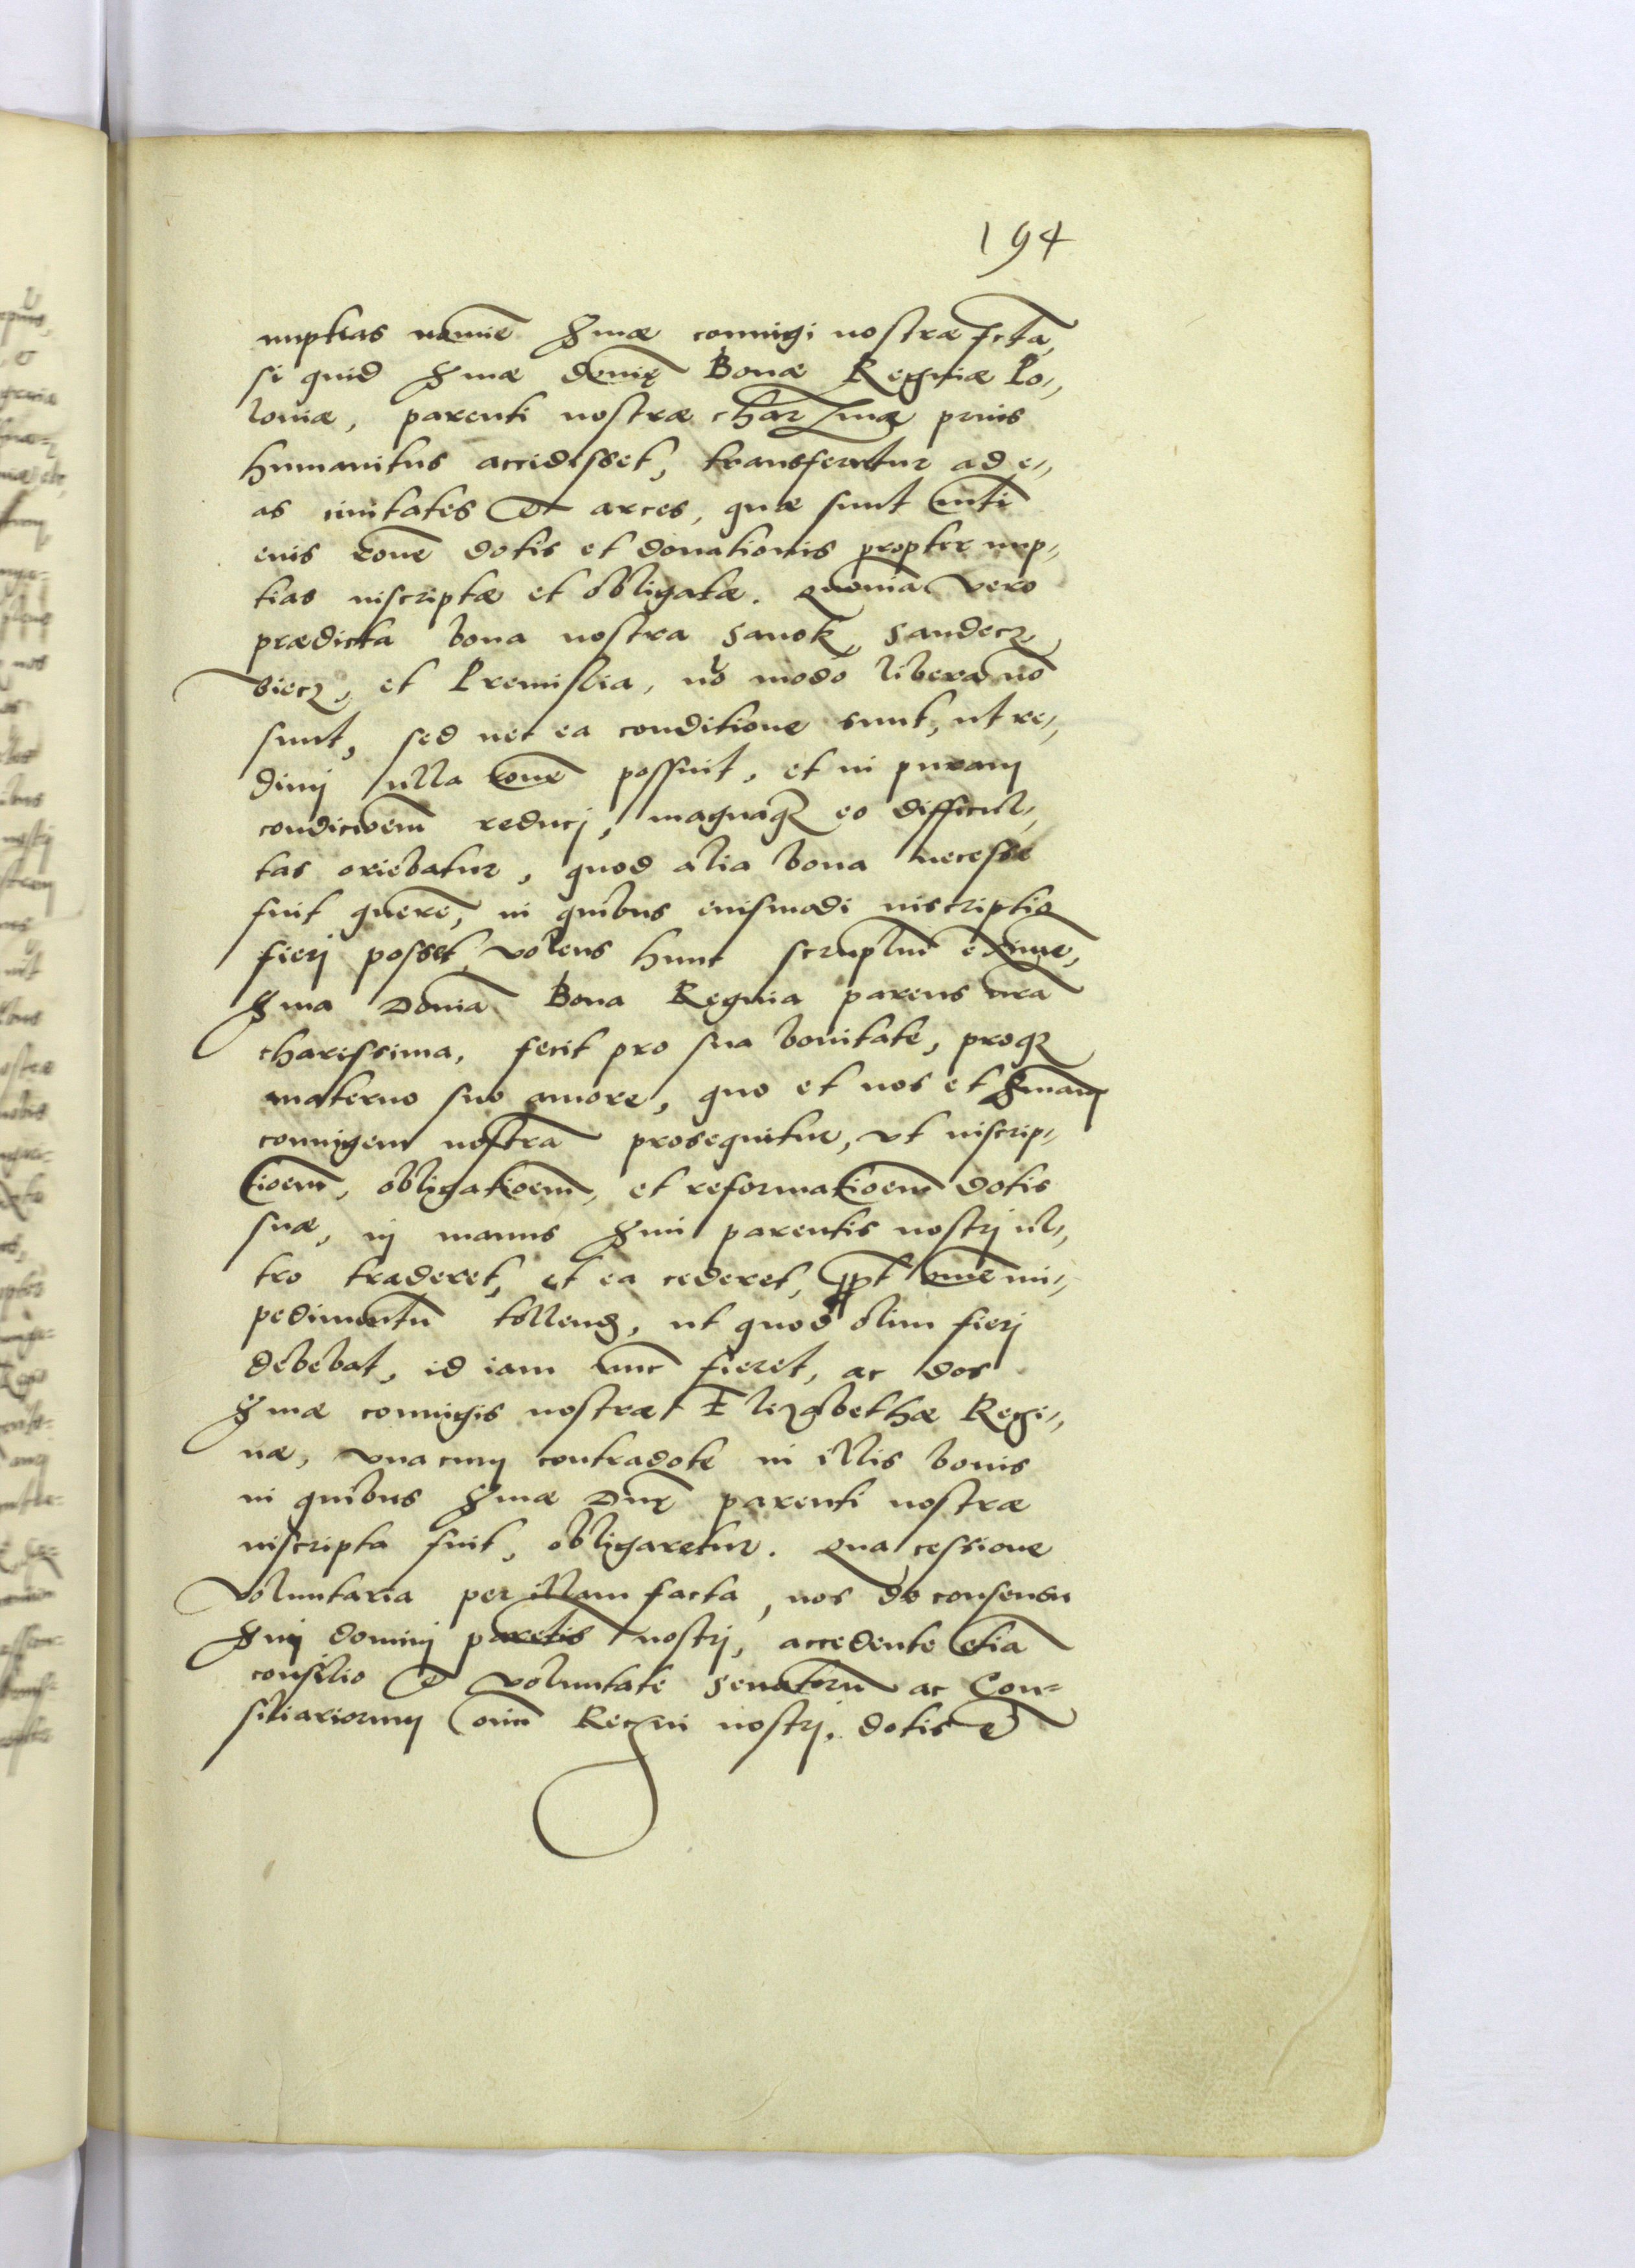 194
nuptias nomine Sermae coniugi nostrae fcta,
si quid Sermae domine Bonae Reginae Po„
loniae, parenti nostrae charissmae prius
humanitus accidisset, transferetur ad e„
as ciuitates et arces, quae sunt
eius rone dotis et donationis propter nup„
tias inscriptae et obligatae. Quonia vero
praedicta bona nostra Sanok, Sandecz,
Biecz, et Premislia, nõ modo libera nõ
sunt, sed nec ea conditione sunt, ut re„
dimj ulla rone possint, et in puram
condicioem reducj, magnaq3 eo difficul„
tas oriebatur, quod alia bona necesse
fuit querere, in quibus eiusmodi inscriptio
fierj posset, volens hunc scruplum eximere,
Serma Domina Bona Regina parens nra
charissima, fecit pro sua bonitate, proq3
materno suo amore, quo et nos et Sermam
coniugem nostra prosequitur, vt inscrip„
tioem, obligatioem, et reformatioem dotis
suae, in manus Sermi parentis nostrj ul„
tro traderet, et ea cederet, omne im„
pedimentu tollens, ut quod olim fierj
debebat, id iam nunc fieret, ac dos
Sermae coniugis nostrae Elizabethae Regi„
nae, vna cum contradote in illis bonis
in quibus Sermae Dne parenti nostrae
inscripta fuit, obligaretur. Qua cessione
voluntaria per illam facta, nos de consensu
Sermj dominj paretis nostrj, accedente etia
consilio et voluntate Senatoru ac Con=
siliariorum oim Regni nostrj, dotis et